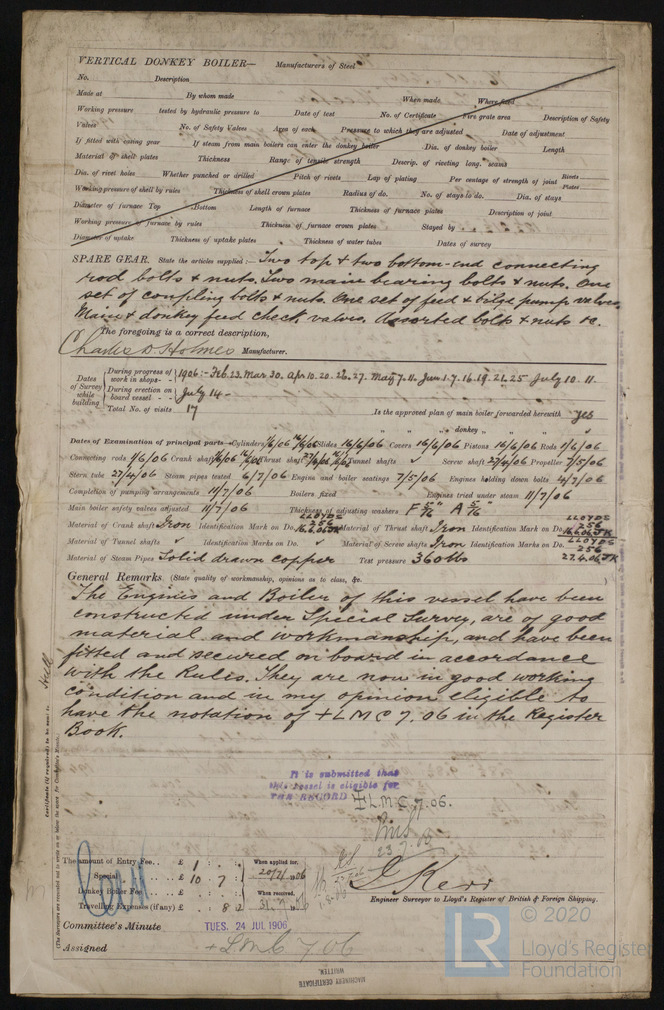 VERTICAL DONKEY BOILER— Manufacturers of Steel
No. Description
Made at By whom made When made Where fixed
Working pressure tested by hydraulic pressure to Date of test No. of Certificate Fire grate area Description of Safety
Valves No. of Safety Valves Area of each Pressure to which they are adjusted Date of adjustment
If fitted with easing gear If steam from main boilers can enter the donkey boiler Dia. of donkey boiler Length
Material of shell plates Thickness Range of tensile strength Descrip. of riveting long. seams
Dia. of rivet holes Whether punched or drilled Pitch of rivets Lap of plating Per centage of strength of joint Rivets Plates
Working pressure of shell by rules Thickness of shell crown plates Radius of do. No. of stays to do. Dia. of stays
Diameter of furnace Top Bottom Length of furnace Thickness of furnace plates Description of joint
Working pressure of furnace by rules Thickness of furnace crown plates Stayed by
Diameter of uptake Thickness of uptake plates Thickness of water tubes Dates of survey
SPARE GEAR. State the articles supplied:— Two top & two bottom-end connecting
rod bolts & nuts. Two main bearing bolts & nuts. One
set of coupling bolts & nuts. One set of feed & bilge pump valves.
Main & donkey feed check valves. Assorted bolts & nuts &c.
The foregoing is a correct description,
Charles D. Holmes Manufacturer.
Dates of Survey while building
During progress of work in shops - - 1906:- Feb. 23. Mar. 30. Apr. 10. 20. 26. 27. May 7. 11. Jun. 1. 7. 16. 19. 21. 25 July 10. 11.
During erection on board vessel - - July 14 -
Total No. of visits 17 Is the approved plan of main boiler forwarded herewith Yes
" " " donkey " " "
Dates of Examination of principal parts—Cylinders Slides 16/6/06 Covers 16/6/06 Pistons 16/6/06 Rods 1/6/06
Connecting rods 1/6/06 Crank shaft Thrust shaft Tunnel shafts ✓ Screw shaft 27/4/06 Propeller 7/5/06
Stern tube 27/4/06 Steam pipes tested 6/7/06 Engine and boiler seatings 7/5/06 Engines holding down bolts 4/7/06
Completion of pumping arrangements 11/7/06 Boilers fixed Engines tried under steam 11/7/06
Main boiler safety valves adjusted 11/7/06 Thickness of adjusting washers F 5/16" A 5/16"
Material of Crank shaft Iron Identification Mark on Do. LLOYDS 256 16.6.06 JK Material of Thrust shaft Iron Identification Mark on Do. LLOYDS 256 16.6.06 JK
Material of Tunnel shafts ✓ Identification Marks on Do. ✓ Material of Screw shafts Iron Identification Marks on Do. LLOYDS 256 27.4.06 JK
Material of Steam Pipes Solid drawn copper Test pressure 360 lbs
General Remarks (State quality of workmanship, opinions as to class, &c.
The Engines and Boiler of this vessel have been
constructed under Special Survey, are of good
material and workmanship, and have been
fitted and secured on board in accordance
with the Rules. They are now in good working
condition and in my opinion eligible to
have the notation of +LMC 7.06 in the Register
Book.
Hull
Certificate (if required) to be sent to
(The Surveyors are requested not to write on or below the space for Committee's Minute.)
It is submitted that
this vessel is eligible for
THE RECORD + L.M.C. 7.06.
23.7.06
The amount of Entry Fee . . £ 1 : : When applied for,
Special . . £ 10 : 7 : 20/7/1906
Donkey Boiler Fee . . £ : : When received,
Travelling Expenses (if any) £ : 8 2 31.7.1906
J. Kerr
Engineer Surveyor to Lloyd's Register of British & Foreign Shipping.
Committee's Minute TUES. 24 JUL 1906
Assigned + LMC 7.06
MACHINERY CERTIFICATE
WRITTEN.
LR
© 2020
Lloyd's Register
Foundation